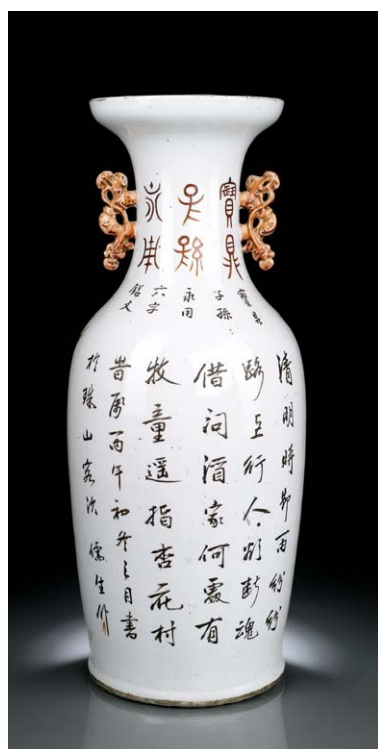 寶鼎
子孫
永用
寶鼎
子孫
永用
六字
銘文
清明時節雨紛紛
路上行人欲斷魂
借問酒家何處有
牧童遙指杏花村
旹屬丙午初冬之月書
於珠山客次 儒生作